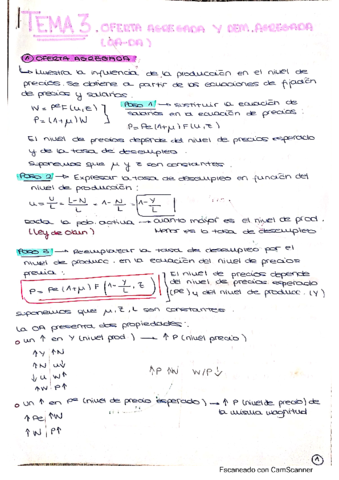 TEMA 3. OFERTA AGREGADA Y DEM. AGREGADA
(OA-DA)
① OFERTA AGREGADA
↳ Muestra la influencia de la producción en el nivel de
precios. Se obtiene a partir de las ecuaciones de fijación
de precios y salarios.
W = Pe F(u, z)
P = (1+μ) W
Paso 1 → sustituir la ecuación de
salarios en la ecuación de precios:
P = Pe (1+μ) F(u, z)
El nivel de precios depende del nivel de precios esperado
y de la tasa de desempleo.
suponemos que μ y z son constantes.
Paso 2 → Expresar la tasa de desempleo en función del
nivel de producción:
u = U/L = L-N/L = 1 - N/L = 1 - Y/L
Dada la pob. activa → cuanto mayor es el nivel de prod.
(Ley de Okun) Menor es la tasa de desempleo
Paso 3 → Reemplazar la tasa de desempleo por el
nivel de producc. en la ecuación del nivel de precios
previa:
P = Pe (1+μ) F (1 - Y/L, z)
El nivel de precios depende
del nivel de precios esperado
(Pe) y del nivel de producc. (Y)
suponemos que μ, z, L son constantes.
La OA presenta dos propiedades:
o un ↑ en Y (nivel prod) → ↑ P (nivel precio)
↑Y ↑N
↑N u↓
↓u W↑
↑W P↑
↑P ↑W W/P↓
o un ↑ en Pe (nivel de precio esperado) → ↑ P (nivel de precio) de
la misma magnitud
↑Pe ↑W
↑W P↑
①
Escaneado con CamScanner